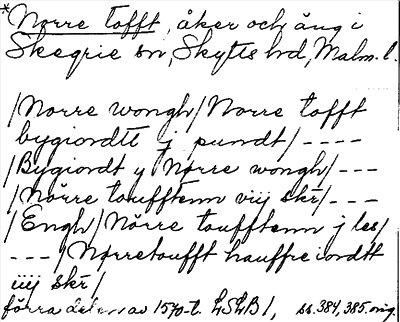 *Nørre tofft, åker och äng i
Skegrie sn, Skytts hd, Malm. l.
/Norre wongh/Norre tofft
bygiordtt j pundt/----
/Bygiordt y Nørre wongh/---
/Nörre toufftenn viij skr̄/---
/Engh/Nörre toufftenn j les/
---/Nørretoufft hauffre iordtt
iiij skr̄/
förra delen av 1570-t. LSLB1, ss. 384, 385. orig.